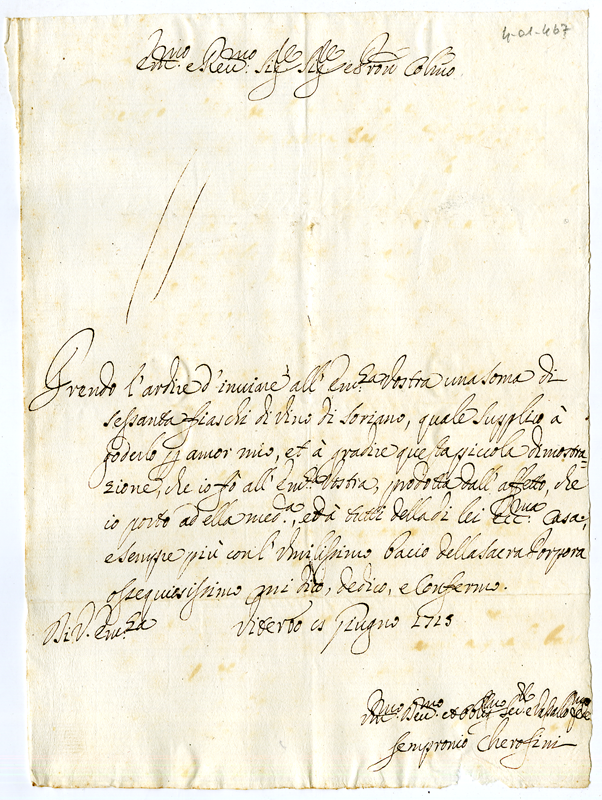 4-01-467
Em.mo e Rev.mo Sig.re Sig.re e Pron Colmo
Prendo l'ardire d'inviare all'Em.za Vostra una soma di
sessanta fiaschi di vino di Soriano, quale supplico à
goderlo p amor mio, et à gradire questa piccola dimostra-
zione, che io fò all'Em.za Vostra, prodotta dall'affetto, che
io porto ad ella med.a, ed à tutti della di lei Ecc.ma Casa,
e sempre più con l'Umilissimo bacio della sacra Porpora
ossequiosissimo mi dico, dedico, e Confermo.
Di V. Em.za Viterbo is Giugno 1713
Um.mo Dev.mo et Obblig.mo Ser.e e Vassallo
Sempronio Cherofini